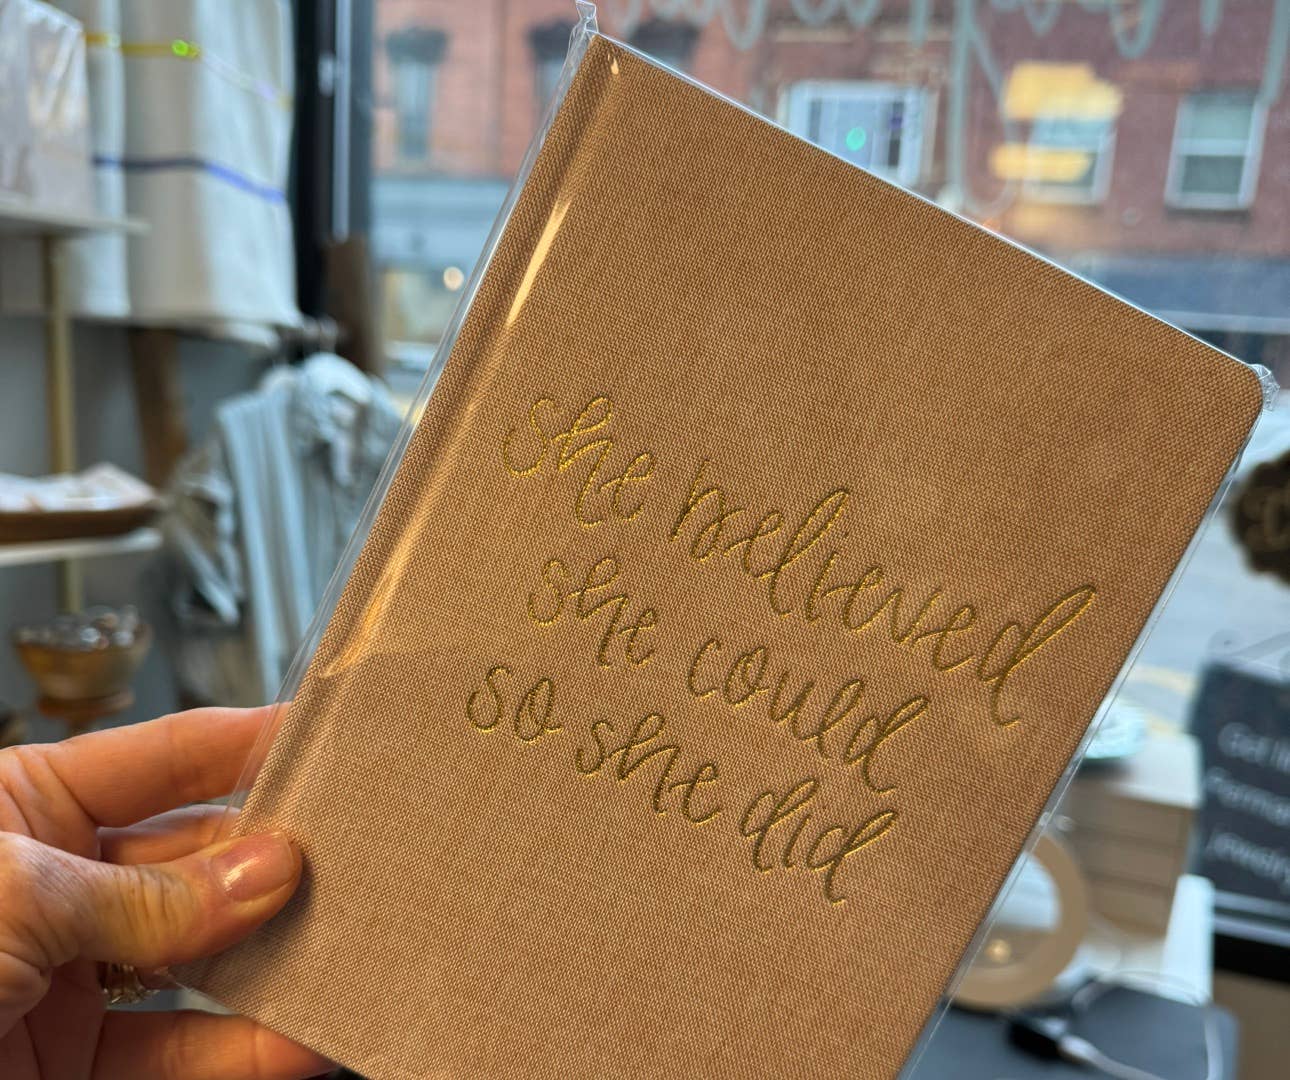 she believed
she could
so she did
Get
jewelry